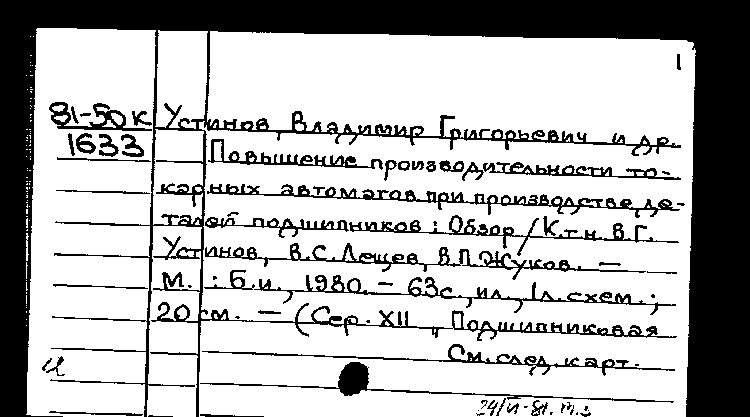 1
81-50к Устинов, Владимир Григорьевич и др.
1633 Повышение производительности то-
карных автоматов при производстве де-
талей подшипников : Обзор / К.т.н. В.Г.
Устинов, В.С. Лещев, В.П. Жуков. —
М. : Б.и., 1980. — 63с., ил., 1л. схем. ;
20 см. — (Сер. XII „Подшипниковая
См. след. карт.
24/VI-81.